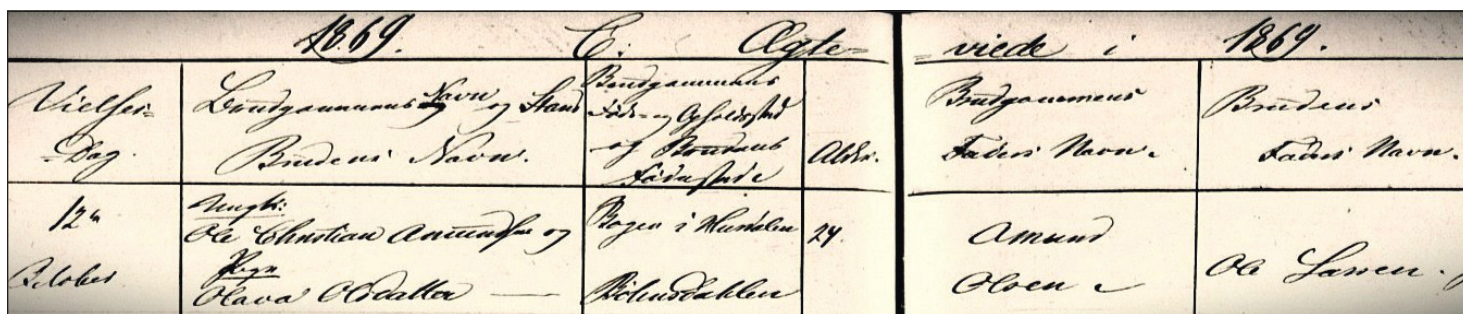 1869. C. Ægte= =viede i 1869.
Vielses=
=Dag.
Brudgommens Navn og Stand
Brudens Navn.
Brudgommens
Føde- og Opholdssted
og Brudens
Fødested
Alder.
Brudgommens
Faders Navn.
Brudens
Faders Navn.
12te
October
Ungk:
Ole Christian Amundsen og
Pige
Olava Olsdatter —
Bogen i
24.
Amund
Olsen
Ole Larsen.